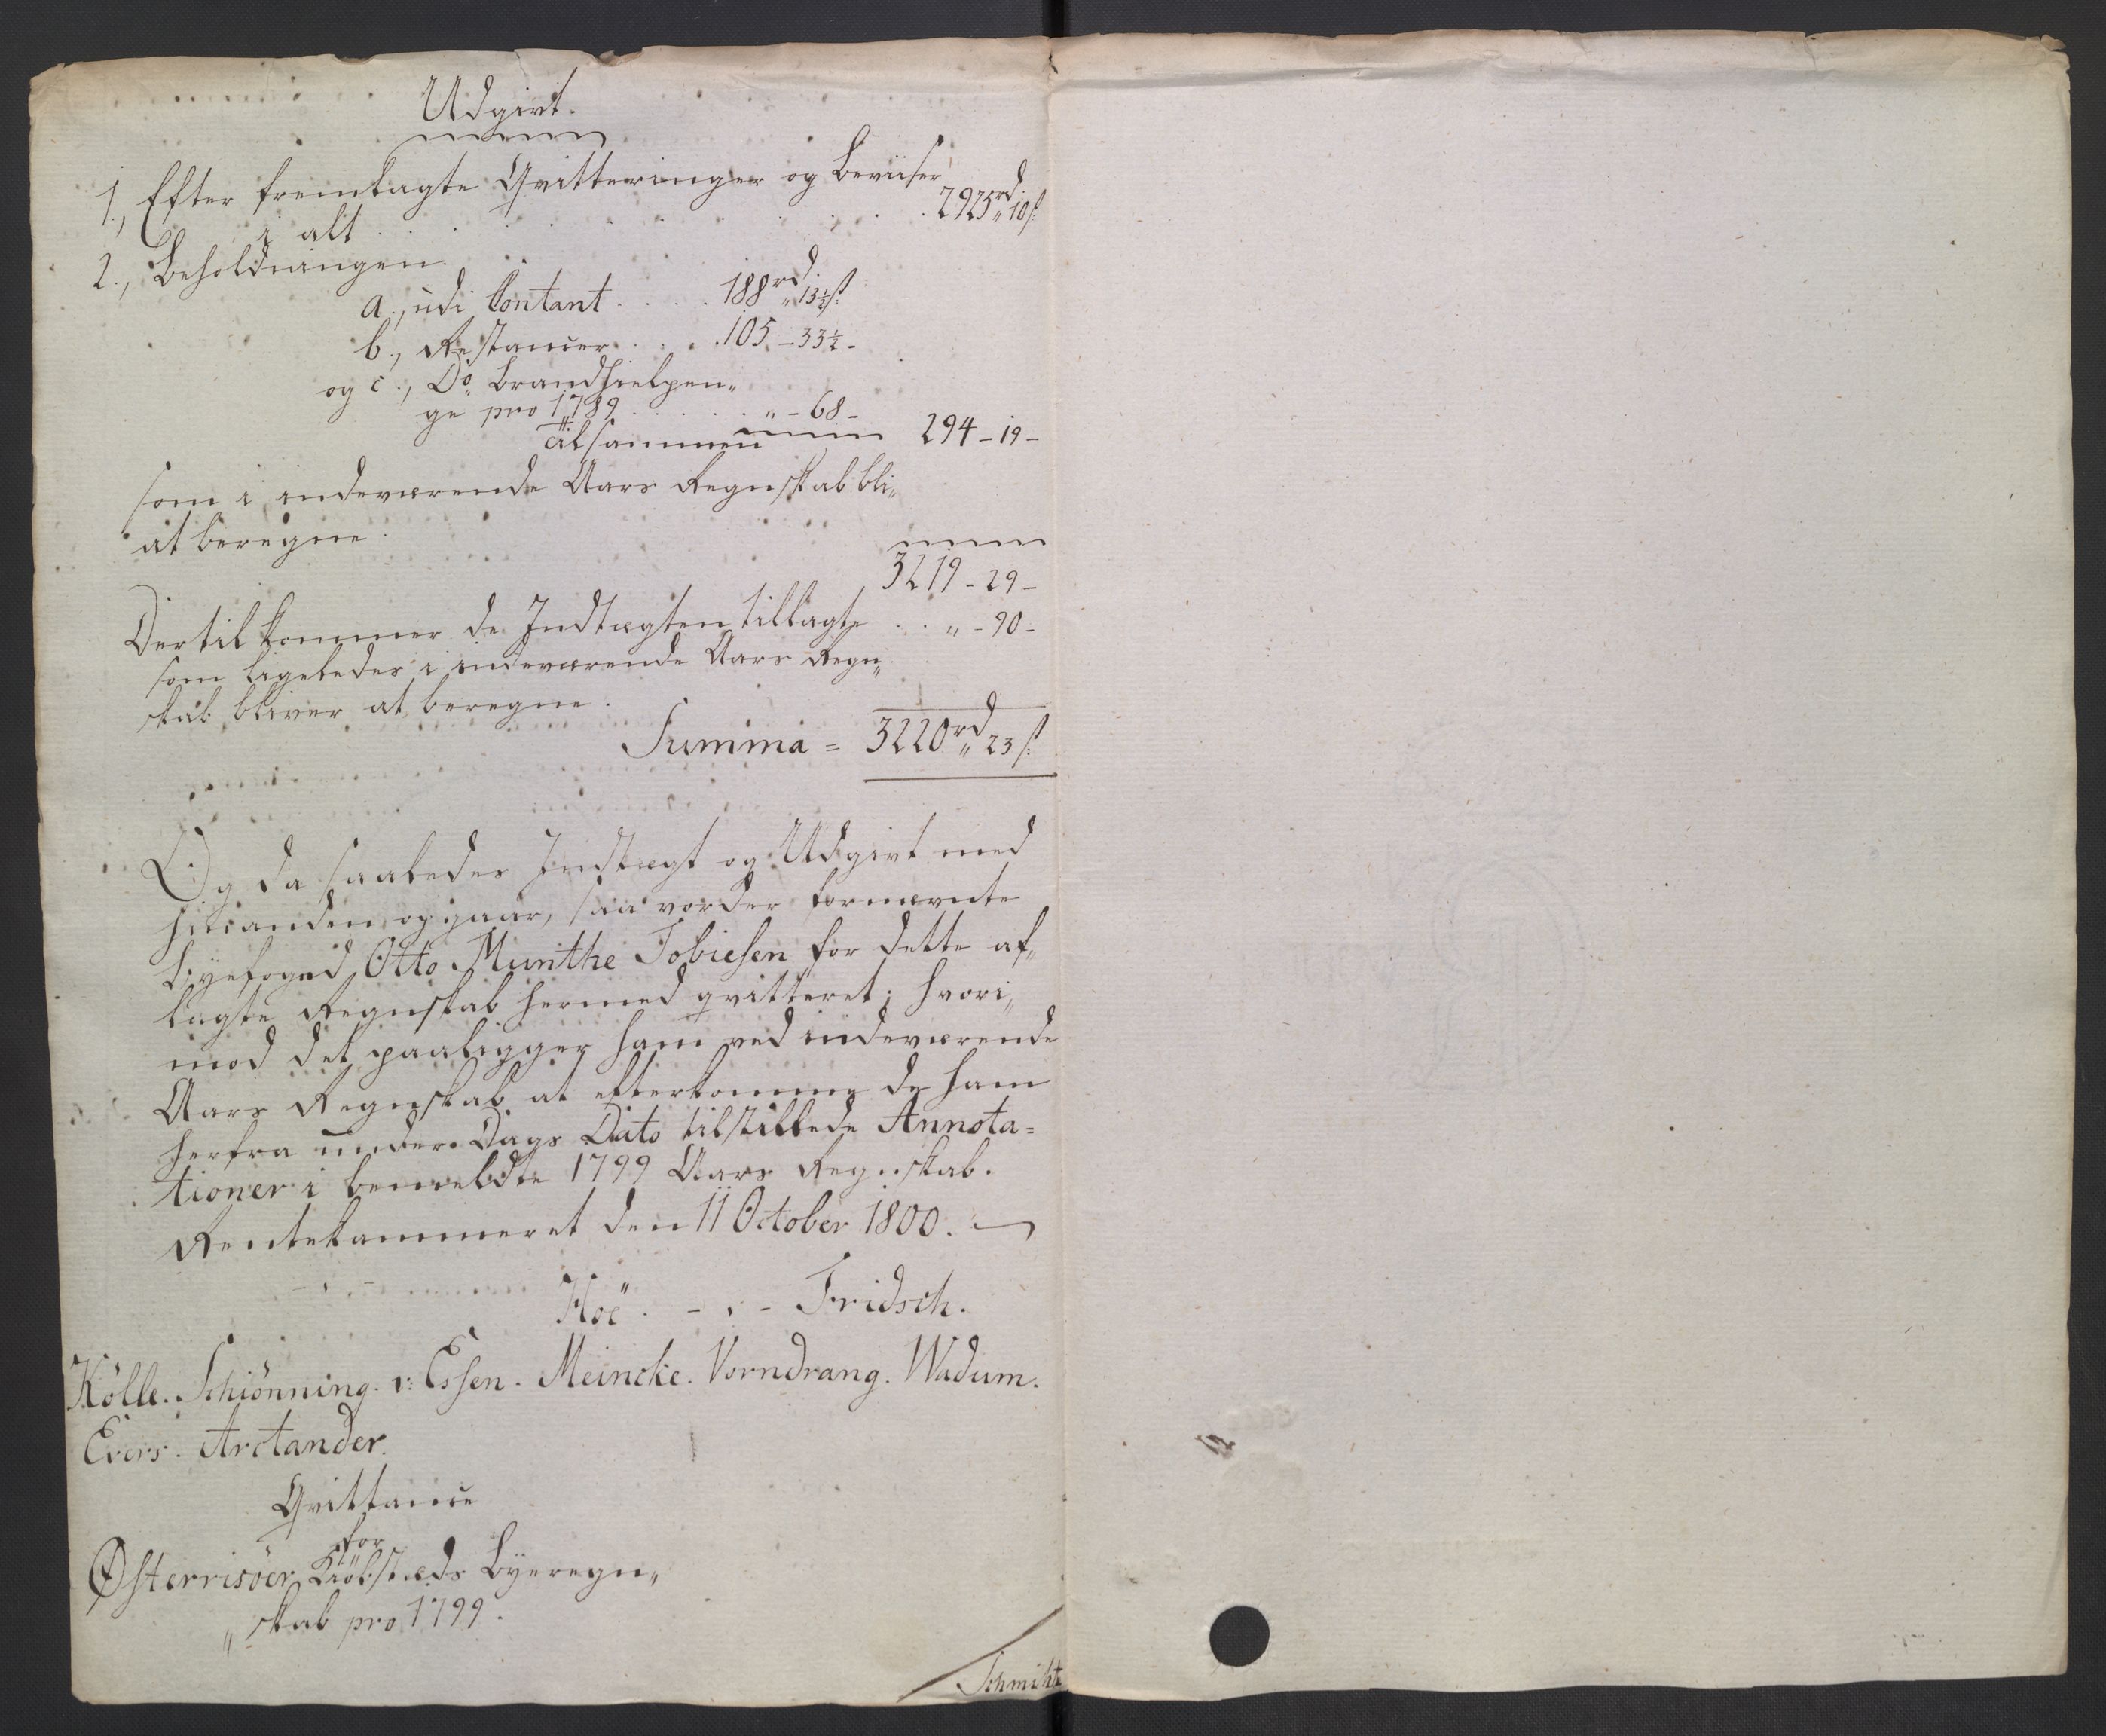 Udgivt.
1., Efter fremlagte Qvitteringer og Beviiser
i alt . . . . . . . . . . 2925rd„ 10 s:
2., Beholdningen
a., udi Contant . . . . 188rd„ 13½ s:
b., Restancer . . . . 105 - 33½ -
og c., Do Brandhielpen„
ge pro 1789 . . . . . „ - 68 -
tilsammen 294 - 19 -
som i indeværende Aars Regnskab bli„
at beregne.
3219 - 29 -
Dertil kommer de Indtægten tillagte . . „ - 90 -
som ligeledes i indeværende Aars Regn„
skab bliver at beregne.
Summa = 3220rd„ 23 s:
Og da saaledes Indtægt og Udgivt med
hinanden opgaar, saa vorder bemævnte
Byefoged Otto Munthe Tobiesen for dette af„
lagte Regnskab hermed qvitteret; hvori„
mod det paaligger ham ved indeværende
Aars Regnskab at efterkomme de ham
herfra under Dags Dato tilstillede Annota=
tioner i bemeldte 1799 Aars Regnskab.
Rentekammeret den 11 October 1800.
Höe. - . - Fridsch.
Kölle. Schiönning. v: Essen. Meincke. Vorndrang. Wadum.
Evers. Arctander.
Qvittance
for
Østerrisöer Kiöbstæds Byeregn„
„skab pro 1799.